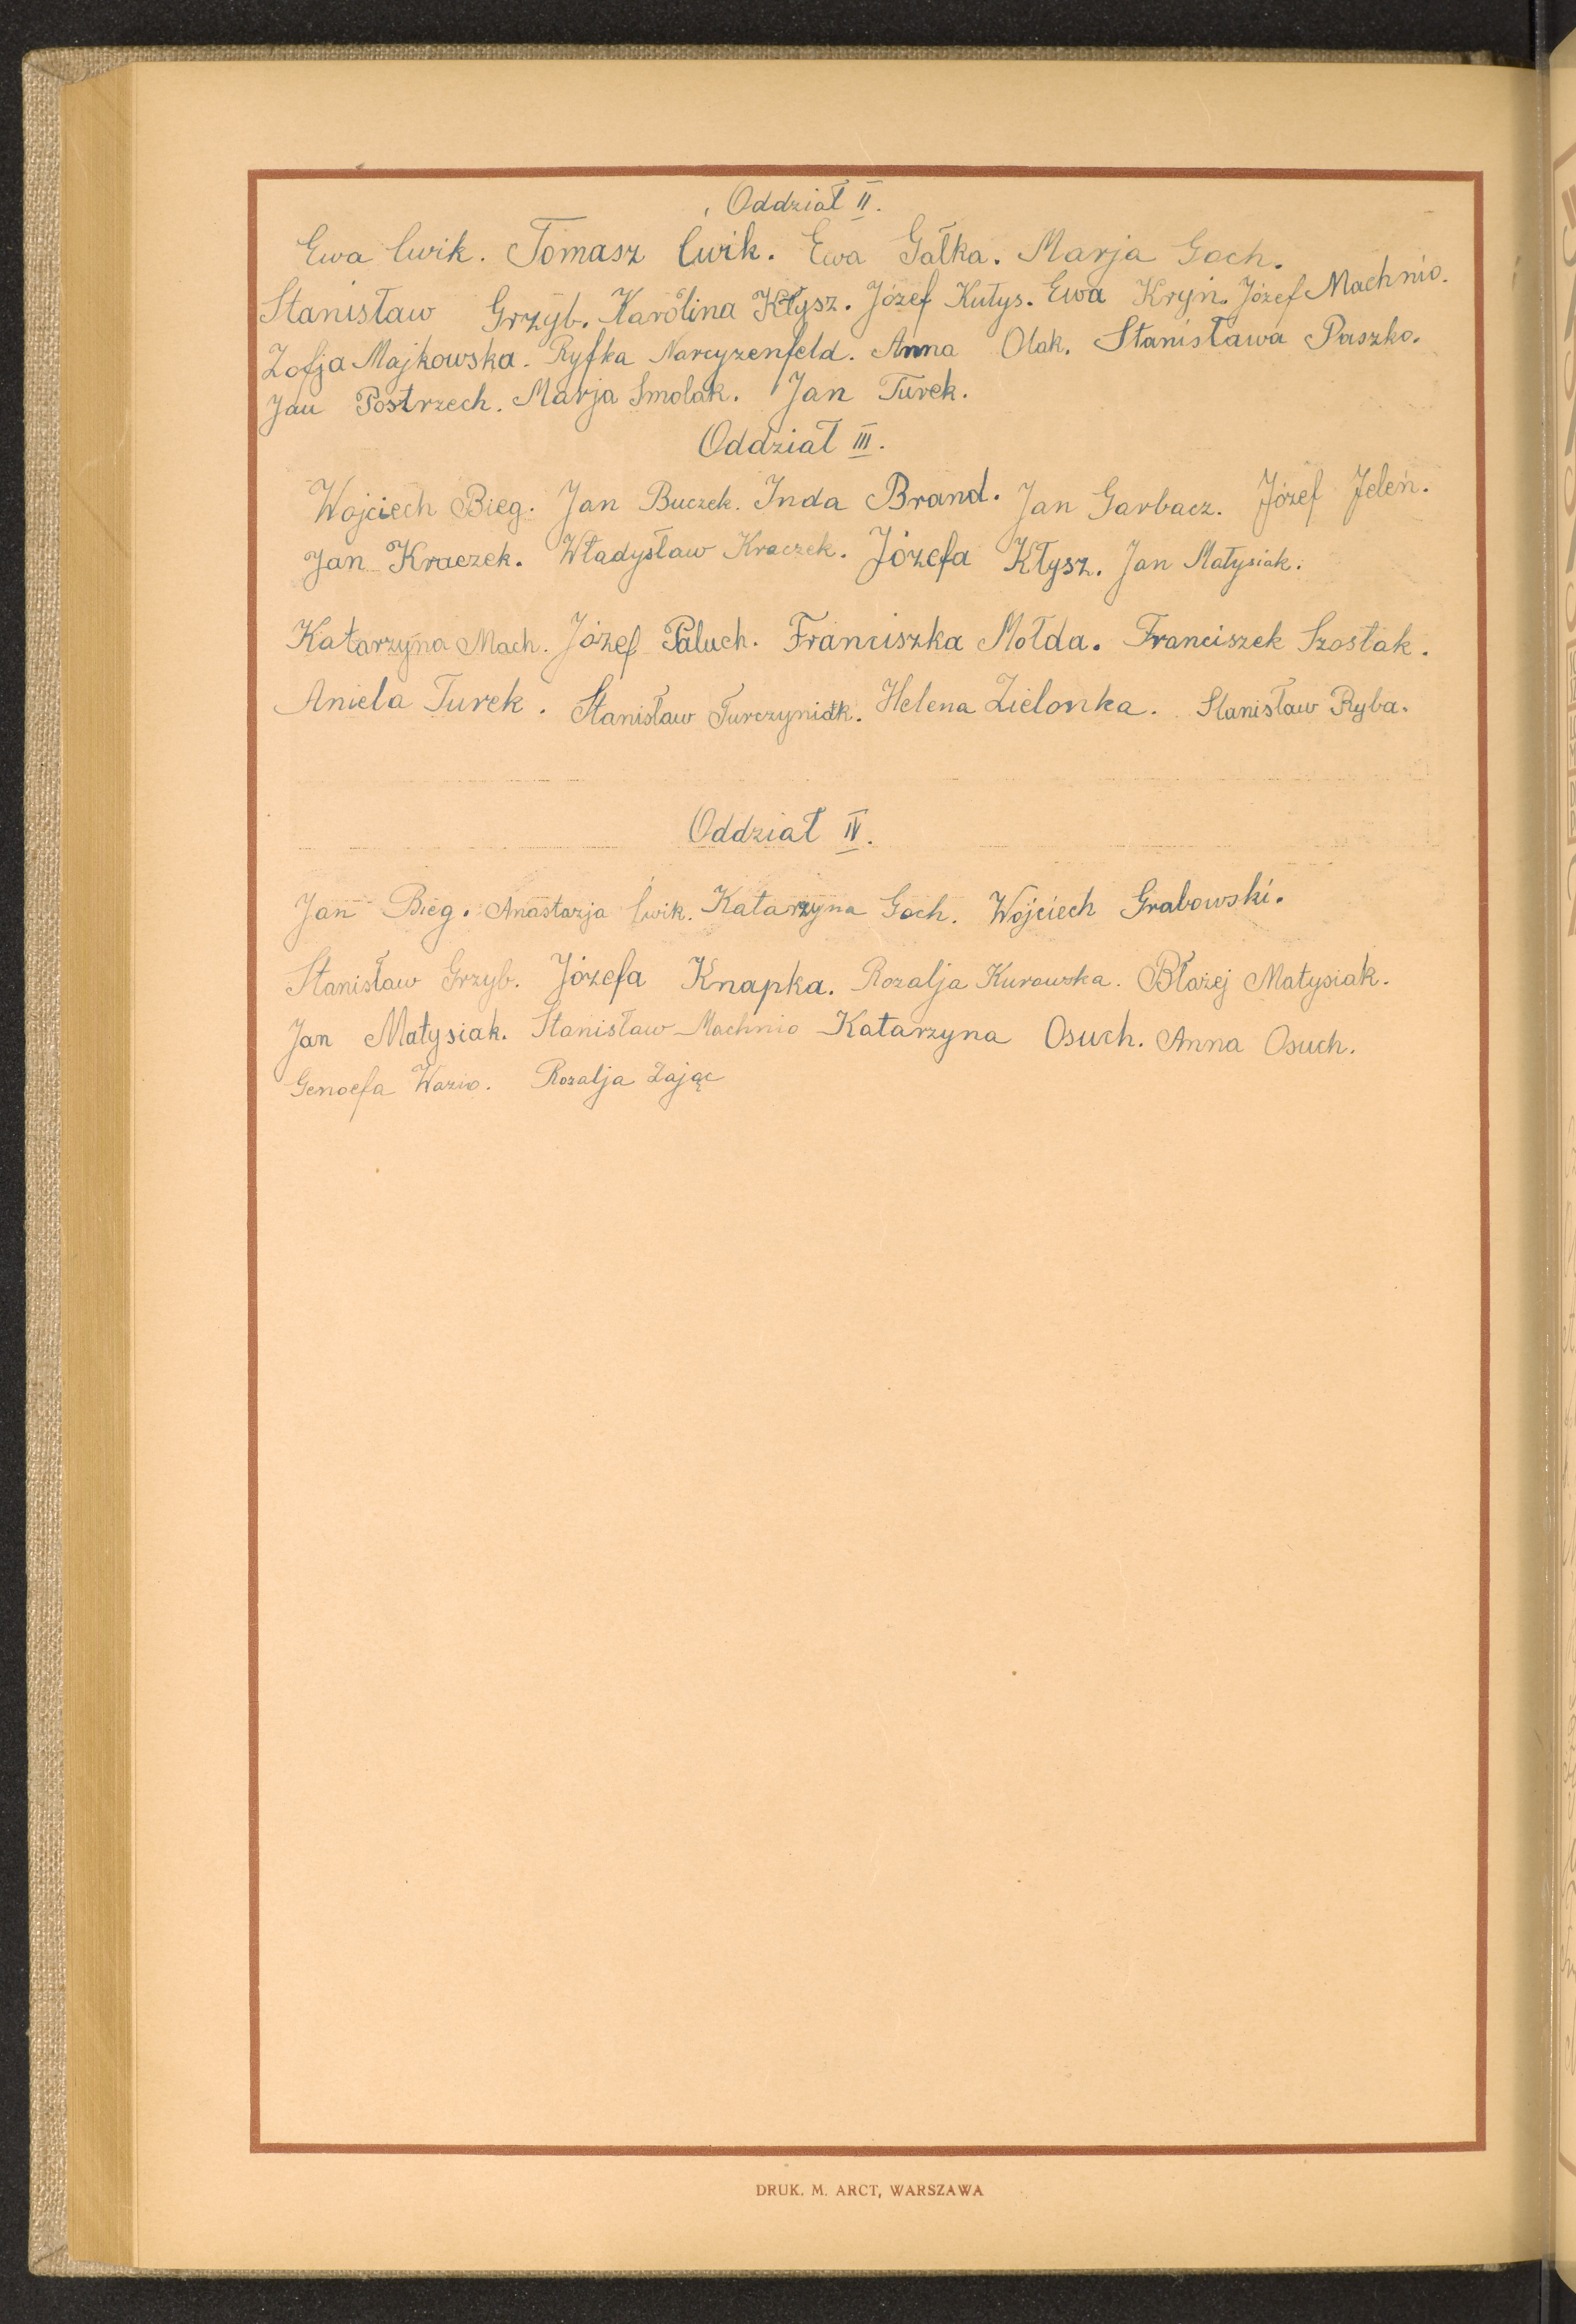 Oddział II.
Ewa Cwik. Tomasz Cwik. Ewa Gałka. Marja Goch.
Stanisław Grzyb. Karolina Kłysz. Józef Kutys. Ewa Kryń. Józef Machnio.
Zofja Majkowska. Ryfka Narcyzenfeld. Anna Olak. Stanisława Paszko.
Jan Postrzech. Marja Smolak. Jan Turek.
Oddział III.
Wojciech Bieg. Jan Buczek. Inda Brand. Jan Garbacz. Józef Jeleń.
Jan Kraczek. Władysław Kraczek. Józefa Kłysz. Jan Małysiak.
Katarzyna Mach. Józef Paluch. Franciszka Mołda. Franciszek Szostak.
Aniela Turek. Stanisław Turczyniak. Helena Zielonka. Stanisław Ryba.
Oddział IV.
Jan Bieg. Anastazja Ćwik. Katarzyna Goch. Wojciech Grabowski.
Stanisław Grzyb. Józefa Knapka. Rozalja Kurowska. Błażej Matysiak.
Jan Matysiak. Stanisław Machnio Katarzyna Osuch. Anna Osuch.
Genoefa Wazio. Rozalja Zając
DRUK. M. ARCT, WARSZAWA